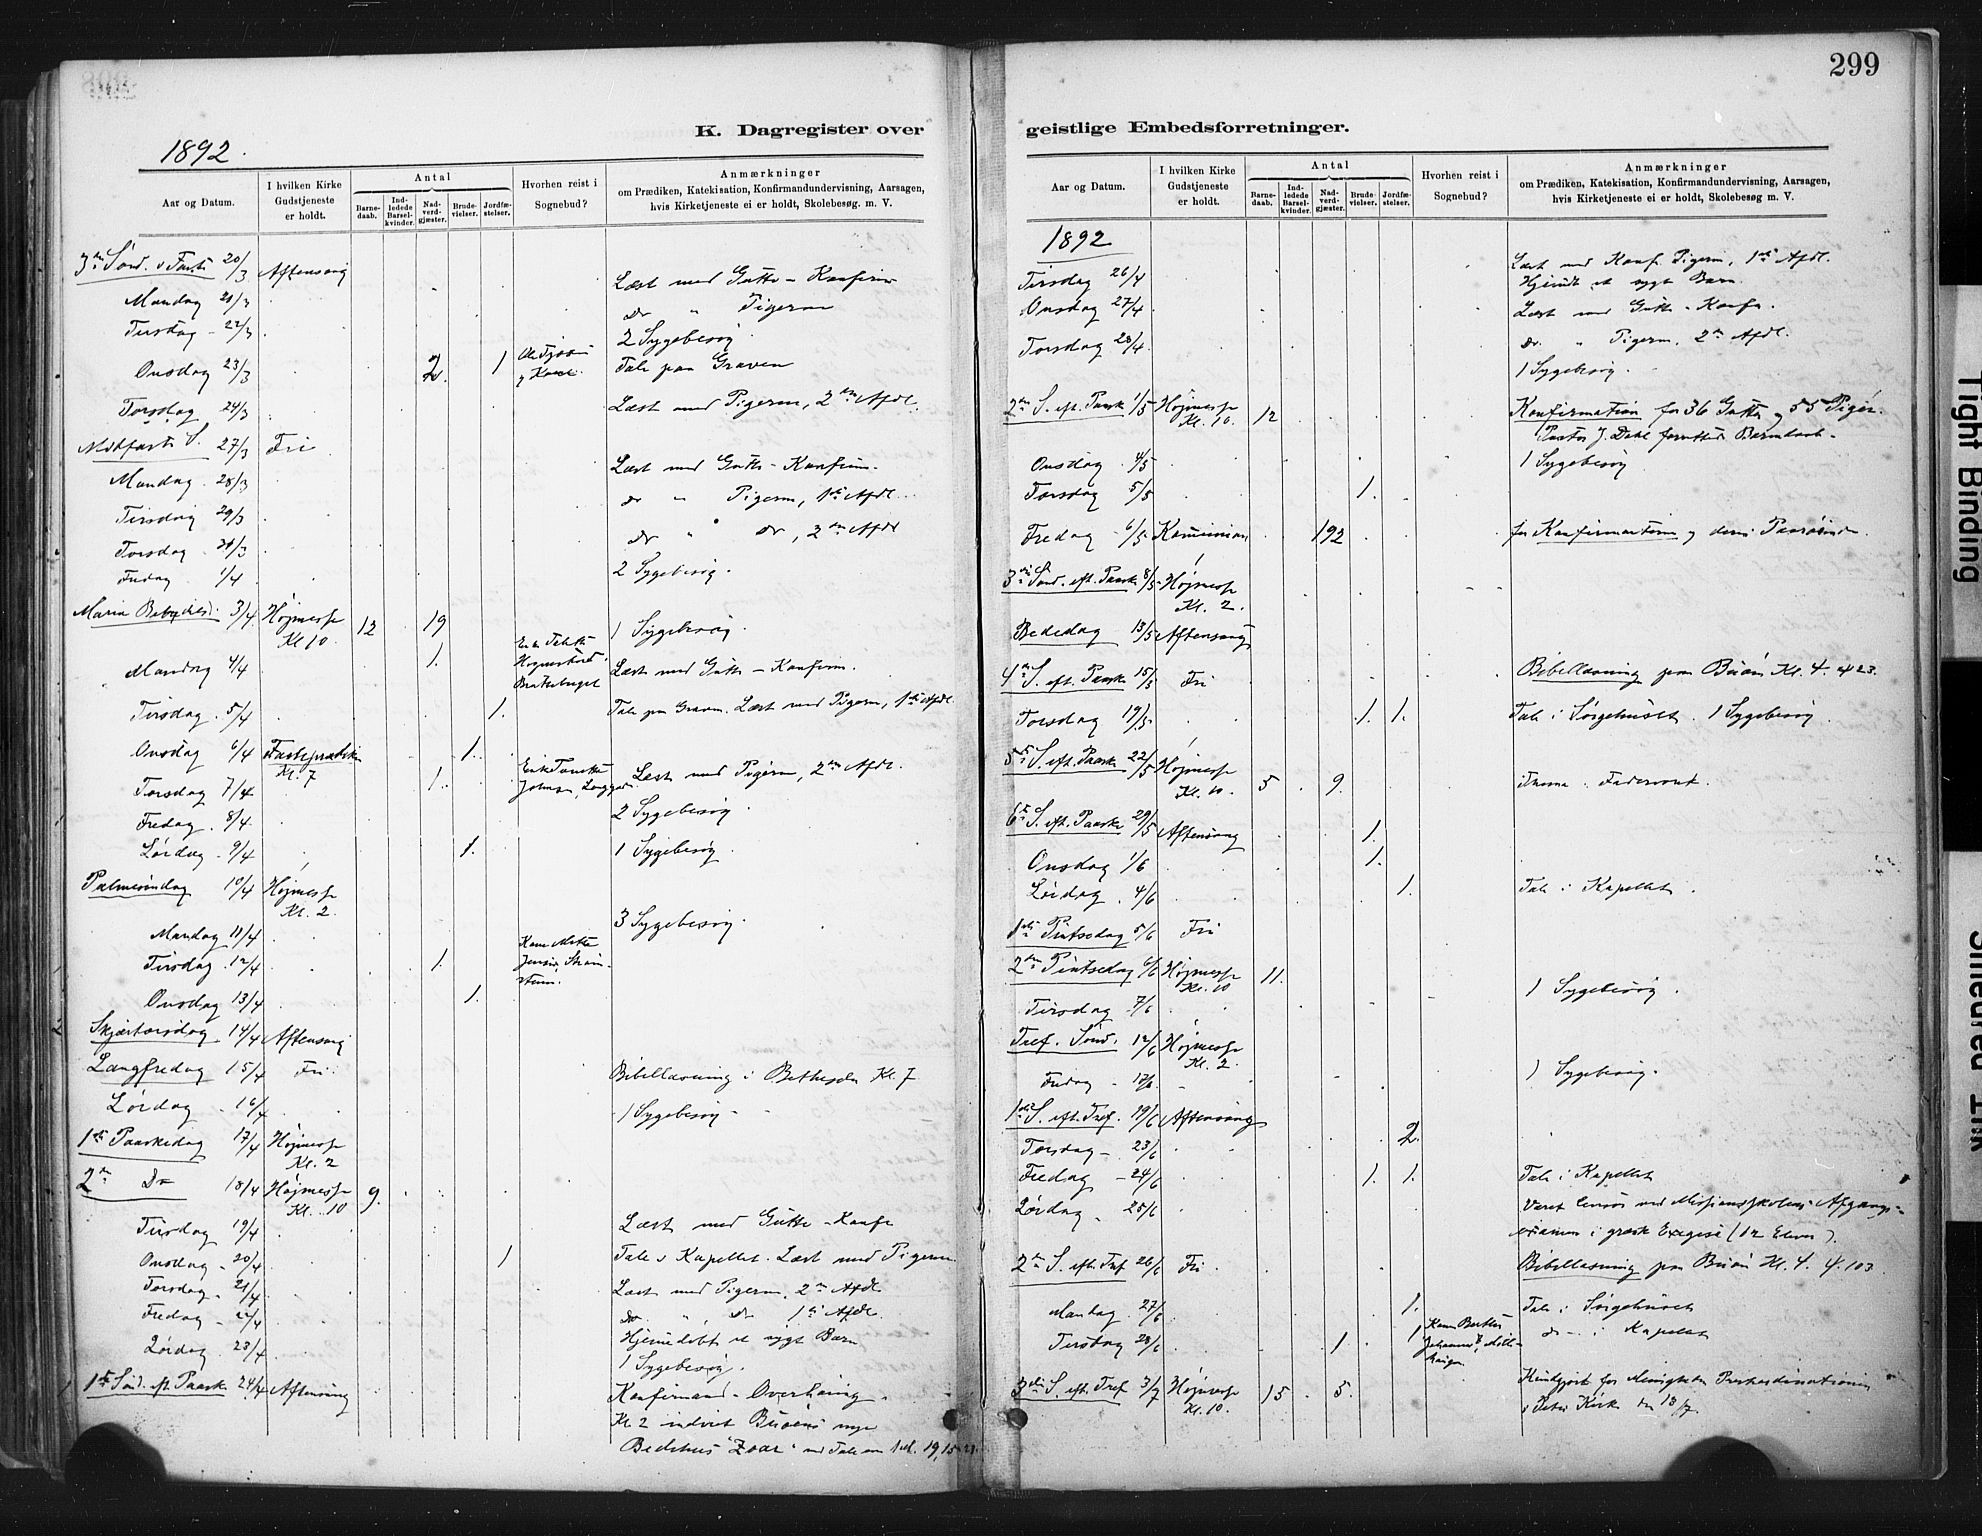 299
K. Dagregister over
geistlige Embedsforretninger.
1892.
Aar og Datum.
I hvilken Kirke Gudstjeneste er holdt.
Antal
Barnedaab.
Indledede Barselkvinder.
Nadverdgjæster.
Brudevielser.
Jordfæstelser.
Hvorhen reist i Sognebud?
Anmærkninger
om Prædiken, Katekisation, Konfirmandundervisning, Aarsagen,
hvis Kirketjeneste ei er holdt, Skolebesøg. m. V.
3die Sønd. i Faste 20/3 Aftensang
Læst med Gutte-Konfirm
Mandag 21/3
do " Pigerne
Tirsdag - 22/3
2 Sygebesøg
Onsdag 23/3 2. 1 Tale paa Graven
Torsdag 24/3
Læst med Pigerne, 2den Afdl.
Midfaste S. 27/3 Fri
Mandag 28/3
Læst med Gutte-Konfirm.
Tirsdag 29/3
do " Pigerne, 1ste Afdl.
Torsdag 31/3
do " do, 2den Afdl
Fredag 1/4
2 Sygebesøg.
Maria Bebudelsesd. 3/4 Højmesse Kl 10. 12 19
1 Sygebesøg.
Mandag 4/4 1.
Læst med Gutte-Konfirm.
Tirsdag. 5/4 1. Tale paa Graven. Læst med Pigerne, 1ste Afdl.
Onsdag 6/4 Fasteprædiken Kl. 7 1.
Torsdag 7/4 1. Læst med Pigerne, 2den Afdl.
Fredag. 8/4.
2 Sygebesøg
Lørdag. 9/4 1. 1 Sygebesøg.
Palmesøndag 10/4 Højmesse Kl. 2.
Mandag 11/4
3 Sygebesøg.
Tirsdag. 12/4 1.
Onsdag 13/4 1.
Skjærtorsdag. 14/4 Aftensang
Langfredag 15/4 Fri.
Bibellæsning i Bethesda Kl. 7
Lørdag 16/4
1 Sygebesøg
1ste Paaskedag 17/4 Højmesse Kl. 2
2den Do 18/4 Højmesse Kl. 10 9.
Tirsdag 19/4
Læst med Gutte-Konf.
Onsdag 20/4 1 Tale i Kapellet. Læst med Pigerne
Torsdag. 21/4
Læst med Pigerne, 2den Afdl
Fredag - 22/4
do " do 1ste Afdl.
Lørdag. 23/4
Hjemmedøbt et sygt Barn
1 Sygebesøg.
1ste Sønd. eft. Paaske 24/4 Aftensang
Konfirmand-Overhøring.
Kl. 2 indviet Buøens nye
Bedehus "Zoar" med Tale
Aar og Datum.
I hvilken Kirke Gudstjeneste er holdt.
Antal
Barnedaab.
Indledede Barselkvinder.
Nadverdgjæster.
Brudevielser.
Jordfæstelser.
Hvorhen reist i Sognebud?
Anmærkninger
om Prædiken, Katekisation, Konfirmandundervisning, Aarsagen,
hvis Kirketjeneste ei er holdt, Skolebesøg m. V.
1892
Tirsdag 26/4 Læst med Konf. Pigerne, 1ste Afdl.
Hjemdt. et sygt Barn.
Onsdag 27/4 Læst med Gutte-Konf.
Torsdag 28/4 do. " Pigerne, 2den Afdl.
1 Sygebesøg.
2den S. eft. Paaske 1/5 Højmesse Kl. 10. 12 Konfirmation for 36 Gutter og 55 Piger.
Pastor J. Dahl forrettede Barnedaab.
Onsdag 4/5 1 Sygebesøg
Torsdag 5/5 1.
Fredag 6/5 Kommunion 192 for Konfirmanterne og deres Paarørende.
3die Sønd. eft. Paaske 8/5 Højmesse Kl. 2.
Bededag 13/5 Aftensang
4de S. eft. Paaske 15/5 Fri Bibellæsning paa Buøen Kl. 4. ψ 23.
Torsdag 19/5. 1. 1. Tale i Sørgehuset. 1 Sygebesøg.
5te S. eft. Paaske 22/5 Højmesse Kl. 10. 5 9.
Fadervort.
6te S. eft. Paaske 29/5 Aftensang 1.
Onsdag 1/6 1.
Lørdag. 4/6 1. Tale i Kapellet.
1ste Pintsedag 5/6 Fri
2den Pintsedag 6/6 Højmesse Kl. 10 11.
Tirsdag 7/6 1 Sygebesøg.
Tref. Sønd. 12/6 Højmesse Kl. 2.
Fredag - 17/6 1 Sygebesøg.
1ste S. eft. Tref. 19/6 Aftensang
Torsdag - 23/6 2.
Fredag - 24/6 1. 1. Tale i Kapellet
Lørdag - 25/6 Været Censor ved Missionsskolens Afgangs-
examen i græsk Exegese (12 Elever).
2den S. eft. Tref 26/6 Fri. Bibellæsning paa Buøen Kl. 4. ψ. 103.
Mandag 27/6 1. Tale i Sørgehuset
Tirsdag 28/6 1. 1 do - i Kapellet
3die S. eft. Tref 3/7 Højmesse Kl. 10. 15 5. Kundgjort for Menigheden Presteordinationen
i Petri Kirke den 13/7.
Tight Binding
Smeared Ink